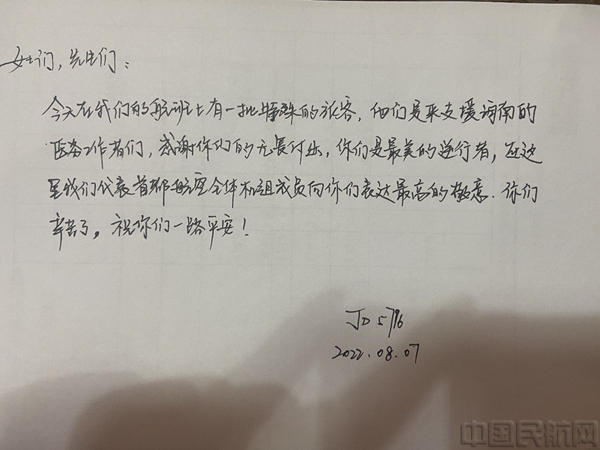 女士们，先生们：
今天在我们的航班上有一批特殊的旅客，他们是来支援海南的
医务工作者们，感谢你们的无畏付出，你们是最美的逆行者，在这
里我们代表首都航空全体机组成员向你们表达最高的敬意.你们
辛苦了，祝你们一路平安！
JD 5796
2022.08.07
中国民航网